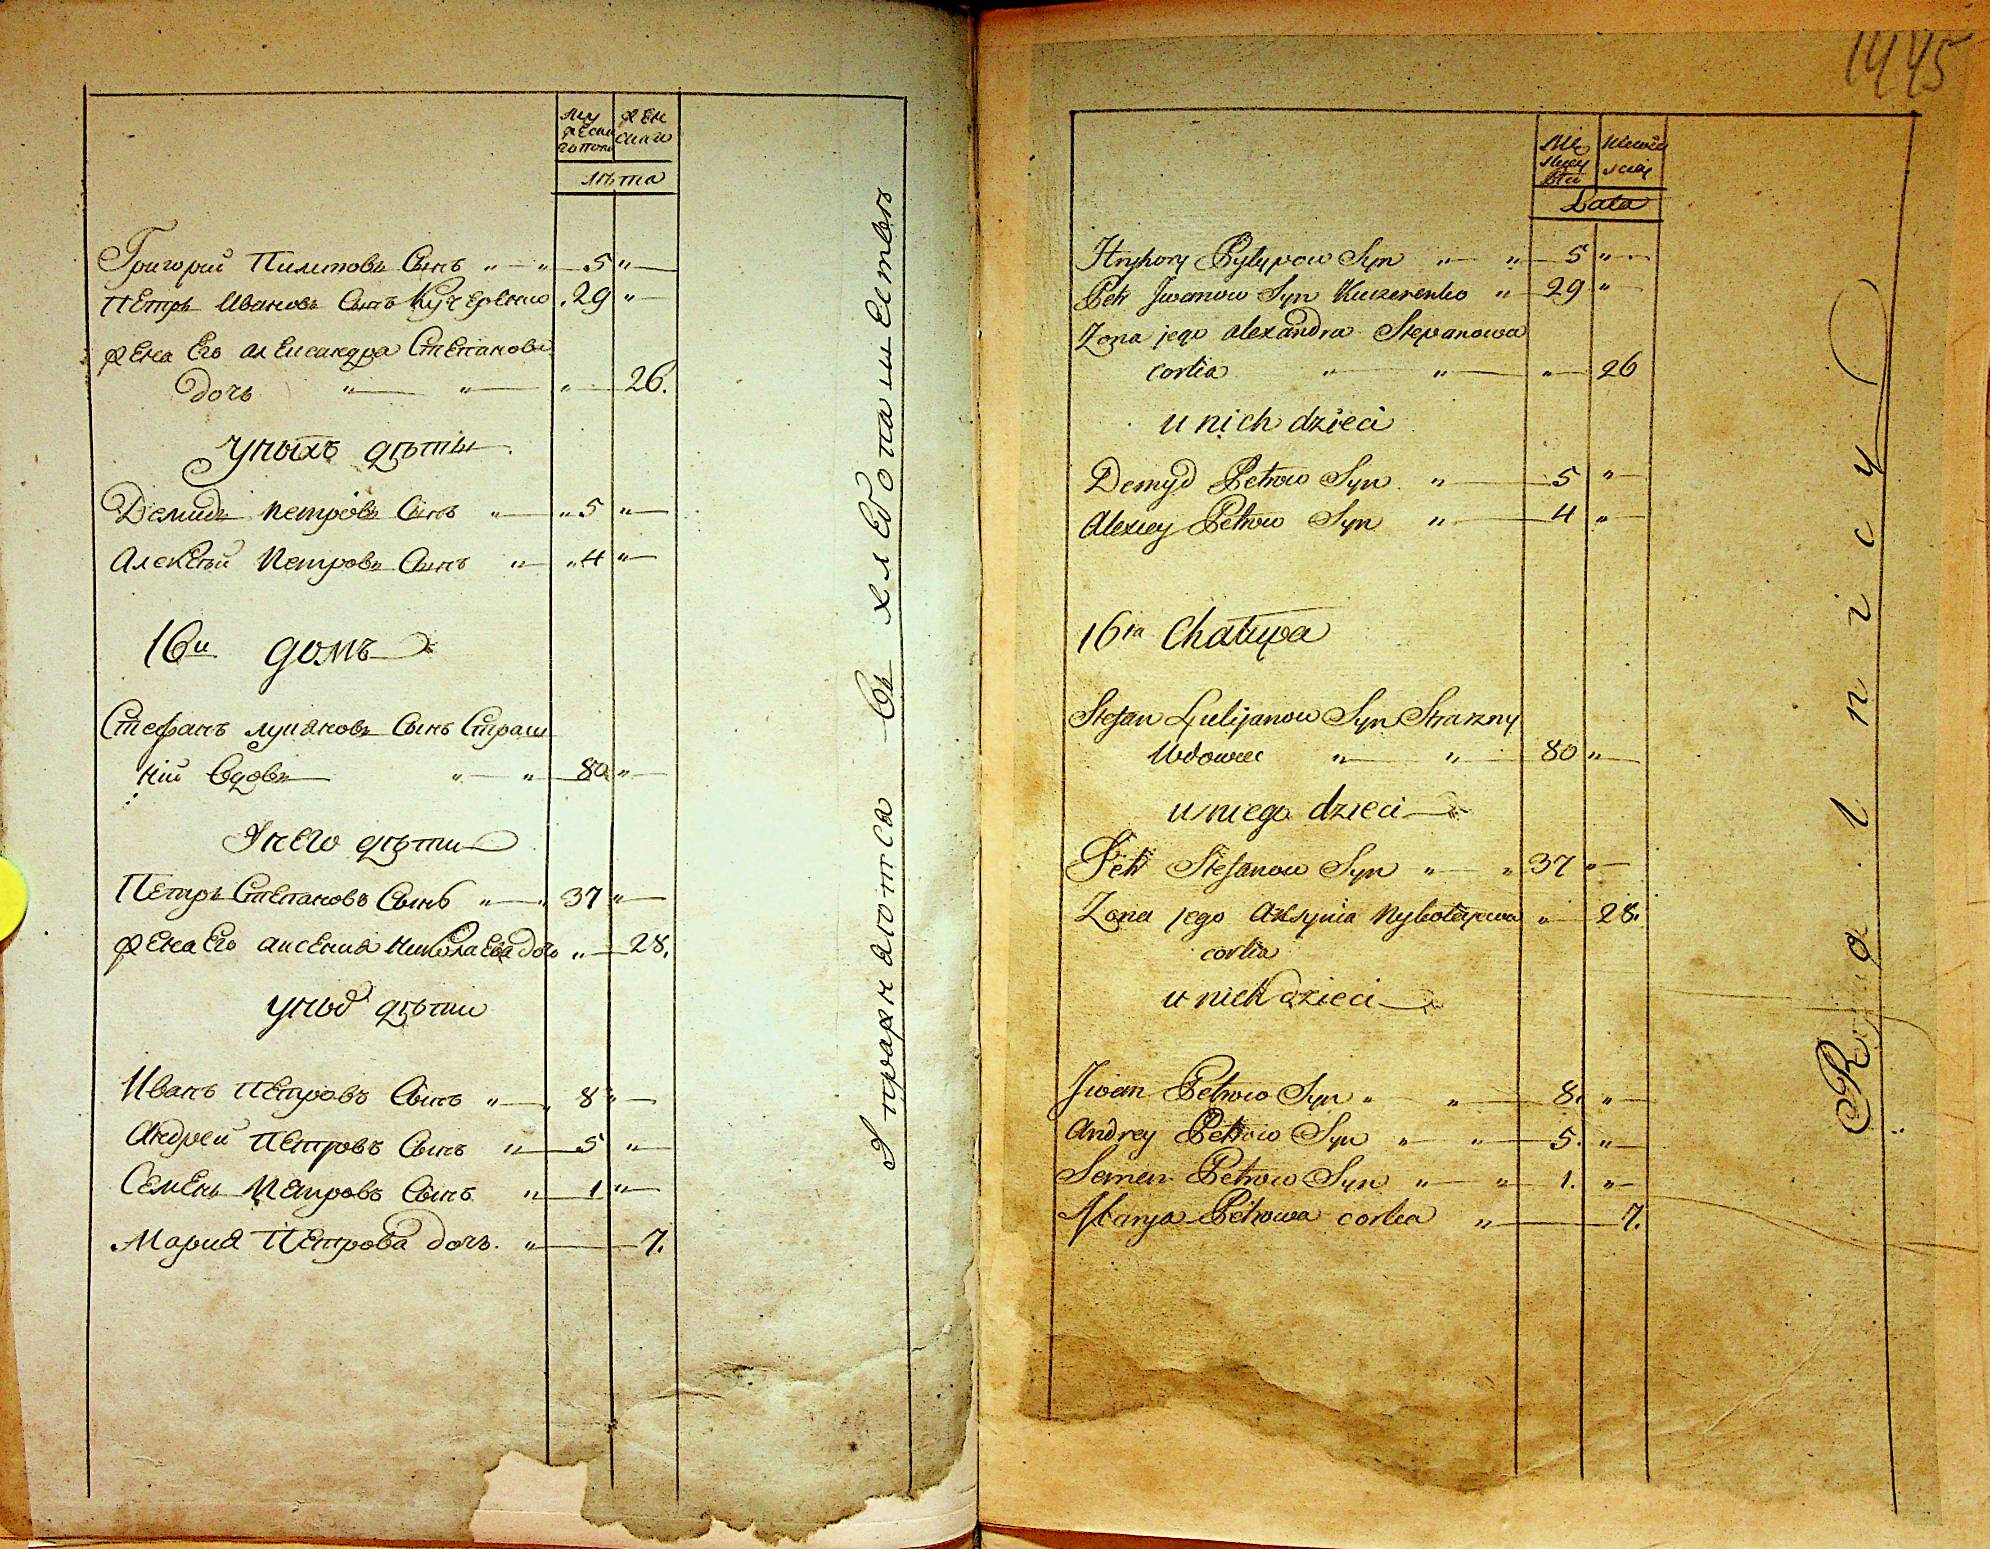 му
жеска
го пола
жен
скаго
лѣта
Григорий Пилиповъ Сынъ " — " 5 " —
Петръ Ивановъ Сынъ Кучеренко . 29 " —
жена Его александра Степанова
дочь " — " — " — 26.
у ныхъ дѣты
Демидъ Петровъ Сынъ " — " 5 " —
Алексѣй Петровъ Сынъ " — " 4 " —
16й домъ
Стефанъ лукяновъ Сынъ Страш
ній вдовъ " — " 80 " —
У него дѣти
Петръ Степановъ Сынъ " — " 37 " —
жена Его аксения николаева дочь " — 28.
у ныхъ дѣти
Иванъ Петровъ Сынъ " — " 8 " —
Андрей Петровъ Сынъ " — 5 " —
Семенъ Петровъ Сынъ " — 1 " —
Мария Петрова дочь. " — 7.
Упражняются въ хлебопашестве
1445
Mę
skiey
płci
Lata
Hryhory Pylypow Syn " — " — 5 " —
Petr Jwanow Syn Kuczerenko " — 29 " —
Zona jego alexandra Stepanowa
corka " — " — " — 26
u nich dzieci
Demyd Petrow Syn " — 5 " —
Alexiey Petrow Syn " — 4 " —
16ta Chałupa
Stefan Lukijanow Syn Straszny
Wdowiec " — " — 80 " —
u niego dzieci
Petr Stefanow Syn " — " 37 " —
Zona jego Axsynia Nykołajowa " — 28.
corka
u nich dzieci
Jwan Petrow Syn " — " — 8. " —
Andrey Petrow Syn " — " — 5. " —
Semen Petrow Syn " — " — 1. " —
Marya Petrowa corka " — 7.
Rolnicy